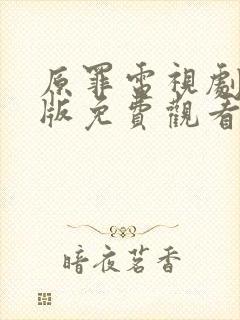 原罪電視劇
版免費觀看
暗夜茗香